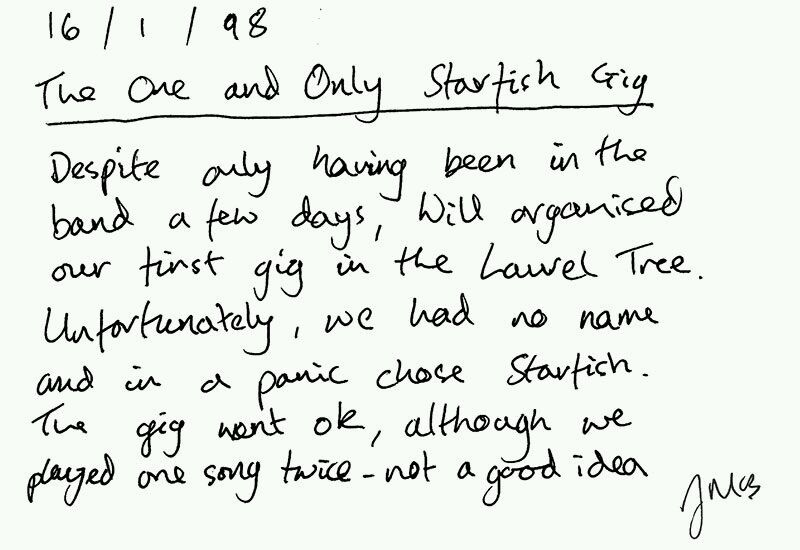 16 / 1 / 98
The One and Only Starfish Gig
Despite only having been in the
band a few days, Will organised
our first gig in the Laurel Tree.
Unfortunately, we had no name
and in a panic chose Starfish.
The gig went ok, although we
played one song twice - not a good idea